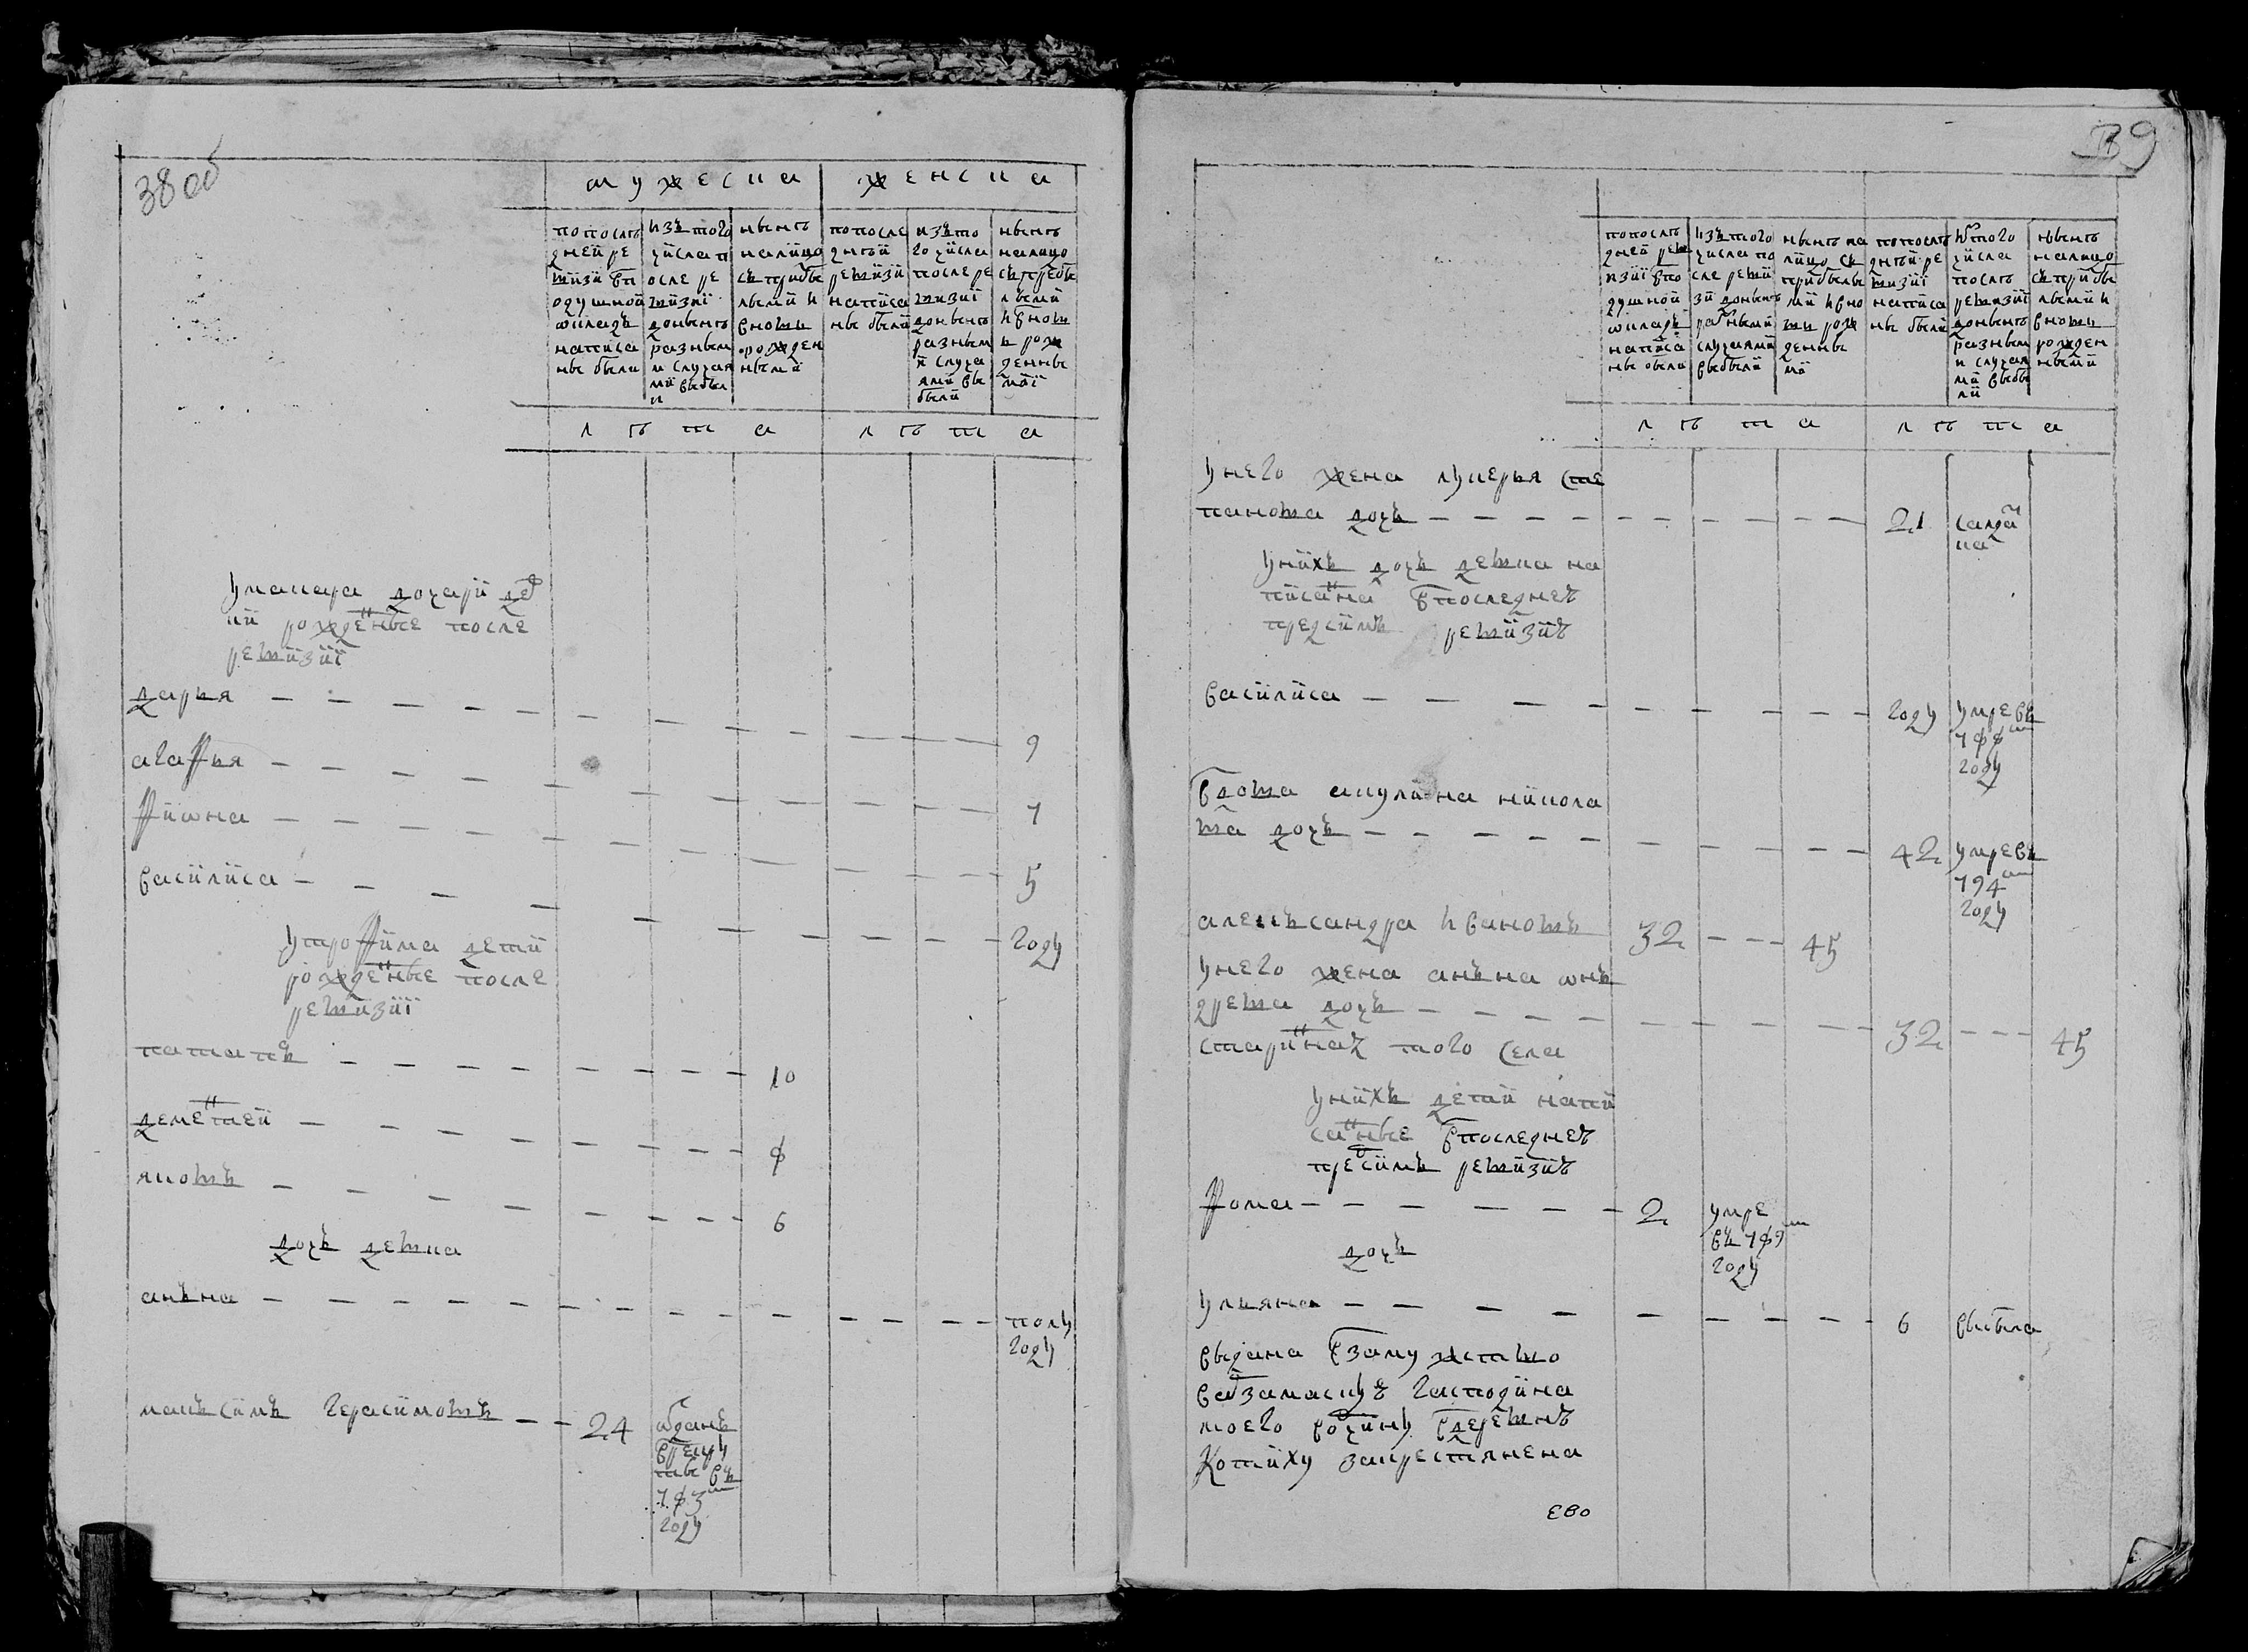 38 об
мужеска женска
попослѣдней ревизіи вподушной окладъ написаны были
изъ того числа после ревизіи доныне разными случаями выбыли
нынѣ налицо съ прибылыми и вновь рожденными
попоследнѣй ревизіи написаны были
изъ того числа после ревизіи доныне разными случаями выбыли
нынѣ налицо съ прибылыми и вновь рожденными
лѣта лѣта
умакара дочери дев
ки рожденые после
ревизиі
дарья 9
агафья 7
фиона 5
василиса году
утрофима дети
рожденые после
ревизиі
патапъ 10
дементей 8
яковъ 6
дочь девка
анъна полу
году
макъсимъ герасимовъ 24 отданъ
врекру
ты въ
783м
году
39
попослѣдней ревизиі вподушной окладѣ написаны были
изъ того числа после ревизіи доныне разными случаями выбыли
нынѣ налицо съ прибылыми и вновь рожденными
попослѣднѣй ревизиі написаны были
ис того числа послѣ ревизиі доныне разными случаями выбыли
нынѣ налицо съ прибылыми и вновь рожденными
лѣта лѣта
унего жена лукерья сте
панова дочь 21 салда
ка
унихъ дочь девка на
писанна впоследнеѣ
предсимъ ревизиѣ
василиса году умре въ
788м
году
вдова акулина никола
ва дочь 42 умре въ
794м
году
алекъсандра ивановъ 32 45
унего жена анъна онъ
древа дочь 32 45
старинная того села
унихъ дети напи
санные впоследнеѣ
предсимъ ревизиѣ
фома 2 умре
въ 789м
году
дочь
ульяна 6 выбыла
выдана взамужство
господина
моего вотчину вдеревнѣ
закрестянена
ево